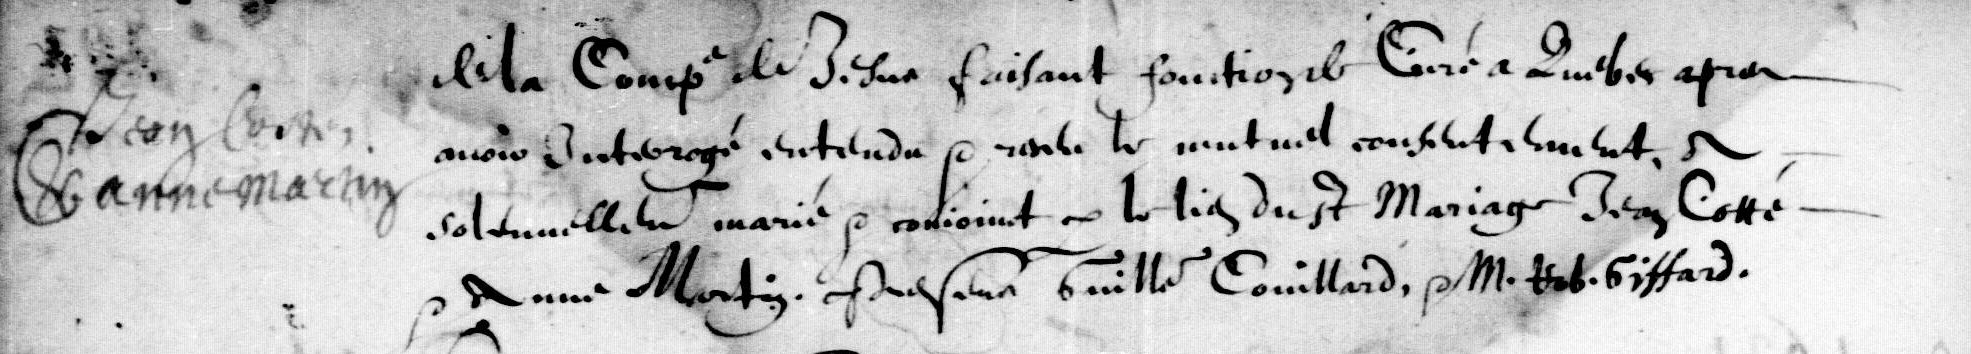 Jean Costé,
& anne martin
de la Comp.e de Jesus faisant fonction de Curé a Quebec apres
avoir Interrogé entendu & receu le mutuel consentement, a
solennellem.t marié & conioint au lien du S.t Mariage Jean Cotté
& Anne Martin. presens Guille Couillard, & M. Rob. Giffard.